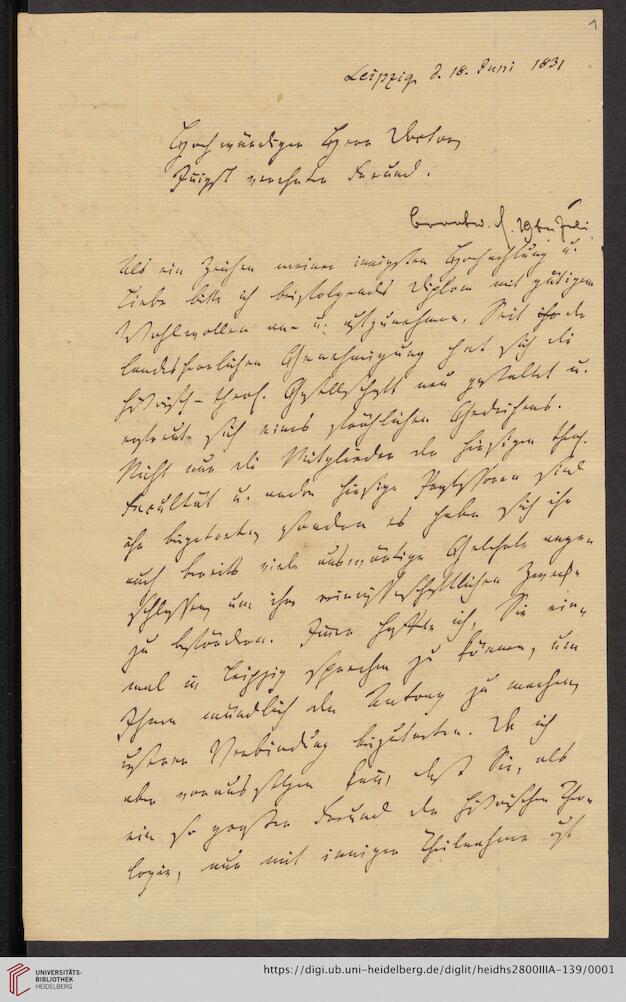 1
Leipzig d. 18. Juni 1831
Hochwürdiger Herr Doctor,
Innigst verehrter Freund.
beantw. d. 29ten Juli
Als ein Zeichen meiner innigsten Hochachtung u.
Liebe bitte ich beifolgendes Diplom mit gütigem
Wohlwollen an- u. aufzunehmen. Seit der
landesherrlichen Genehmigung hat sich die
historisch-theol. Gesellschaft neu gestaltet u.
erfreut sich eines fröhlichen Gedeihens.
Nicht nur die Mitglieder der hiesigen theol.
Facultät u. andre hiesige Professoren sind
ihr beigetreten, sondern es haben sich ihr
auch bereits viele auswärtige Gelehrte ange-
schlossen, um ihre wissenschaftlichen Zwecke
zu befördern. Immer hoffte ich, Sie ein-
mal in Leipzig sprechen zu können, um
Ihnen mündlich den Antrag zu machen,
unserer Verbindung beizutreten. Da ich
aber voraussetzen kann, daß Sie, als
ein so großer Freund der historischen Theo-
logie, nur mit inniger Theilnahme auf
UNIVERSITÄTS-
BIBLIOTHEK
HEIDELBERG
https://digi.ub.uni-heidelberg.de/diglit/heidhs2800IIIA-139/0001